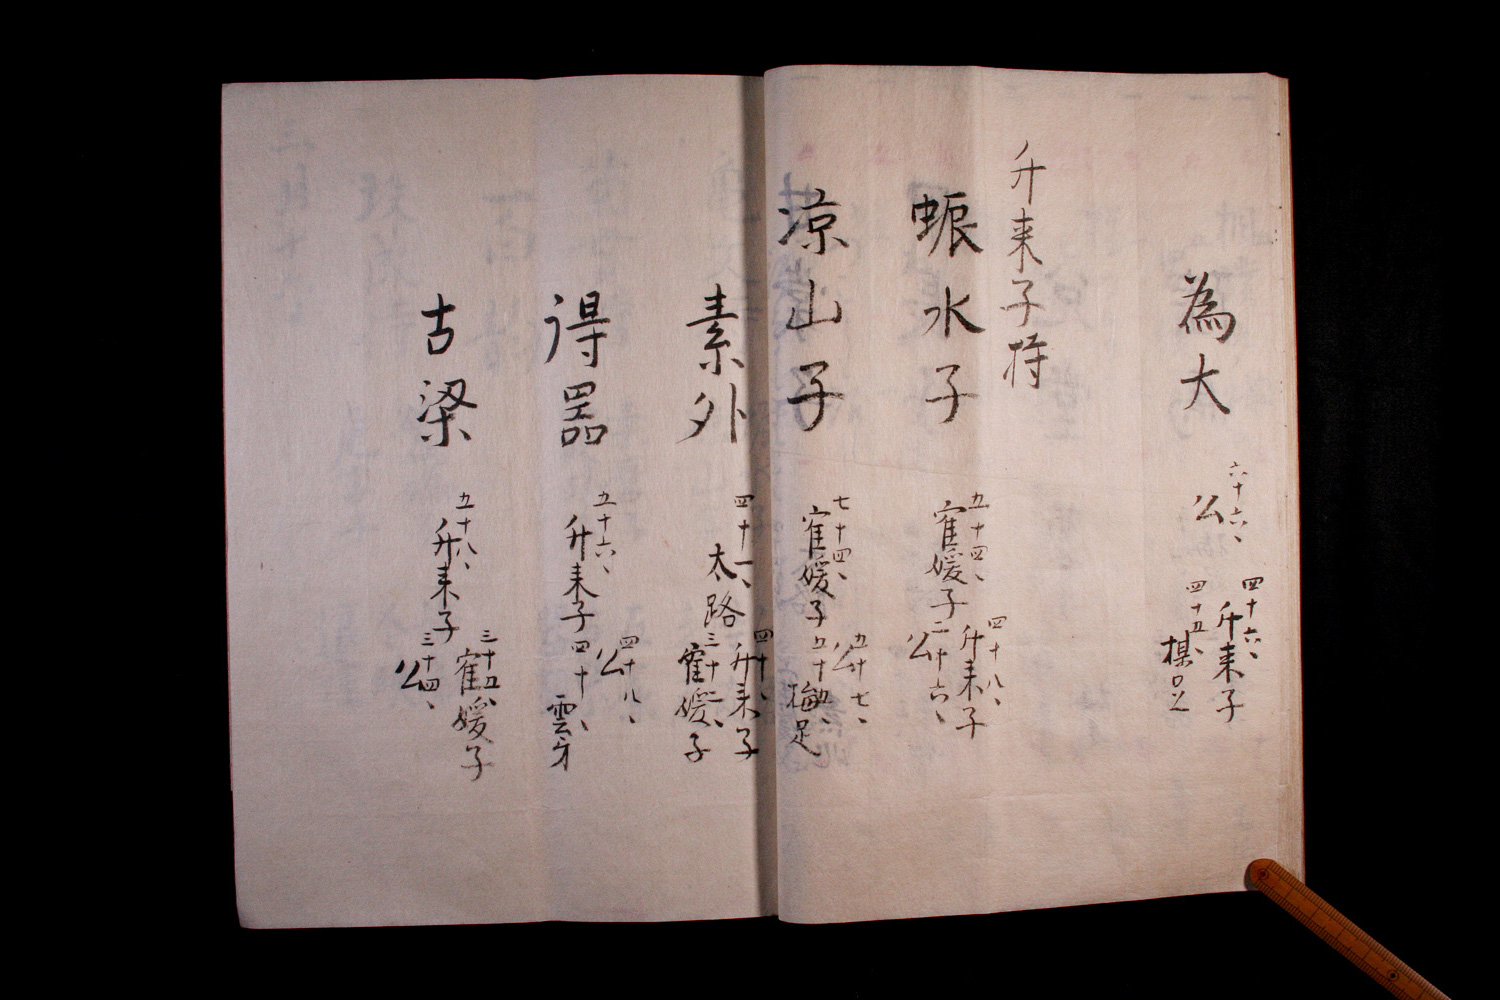 為大
六十六、
公
四十六、
升来子
四十五、
升来子持
蜄水子
五十四、
寉媛子
四十八、
升来子
二十六、
公
涼山子
七十四、
寉媛子
五十七、
公
五十四、
梅足
素外
四十一、
太路
四十、
升来子
三十一、
寉媛子
得器
五十六、
升来子
四十八、
公
四十、
雲牙
古梁
五十八、
升来子
三十五、
寉媛子
三十四、
公